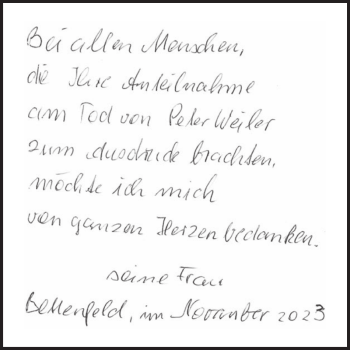 Bei allen Menschen,
die Ihre Anteilnahme
am Tod von Peter Weiler
zum Ausdrucke brachten,
möchte ich mich
von ganzen Herzen bedanken.
seine Frau
Bettenfeld, im November 2023